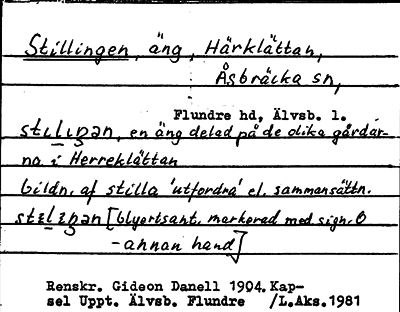 Stillingen, äng, Härklättan,
Åsbräcka sn,
Flundre hd, Älvsb. l.
stılıŋən, en äng delad på de olika gårdar-
na i Herreklättan
bildn. af stilla 'utfordra' el. sammansättn.
stɪlɪŋən [blyertsant. markerad med sign. O
- annan hand]
Renskr. Gideon Danell 1904. Kap-
sel Uppt. Älvsb. Flundre /L.Aks.1981